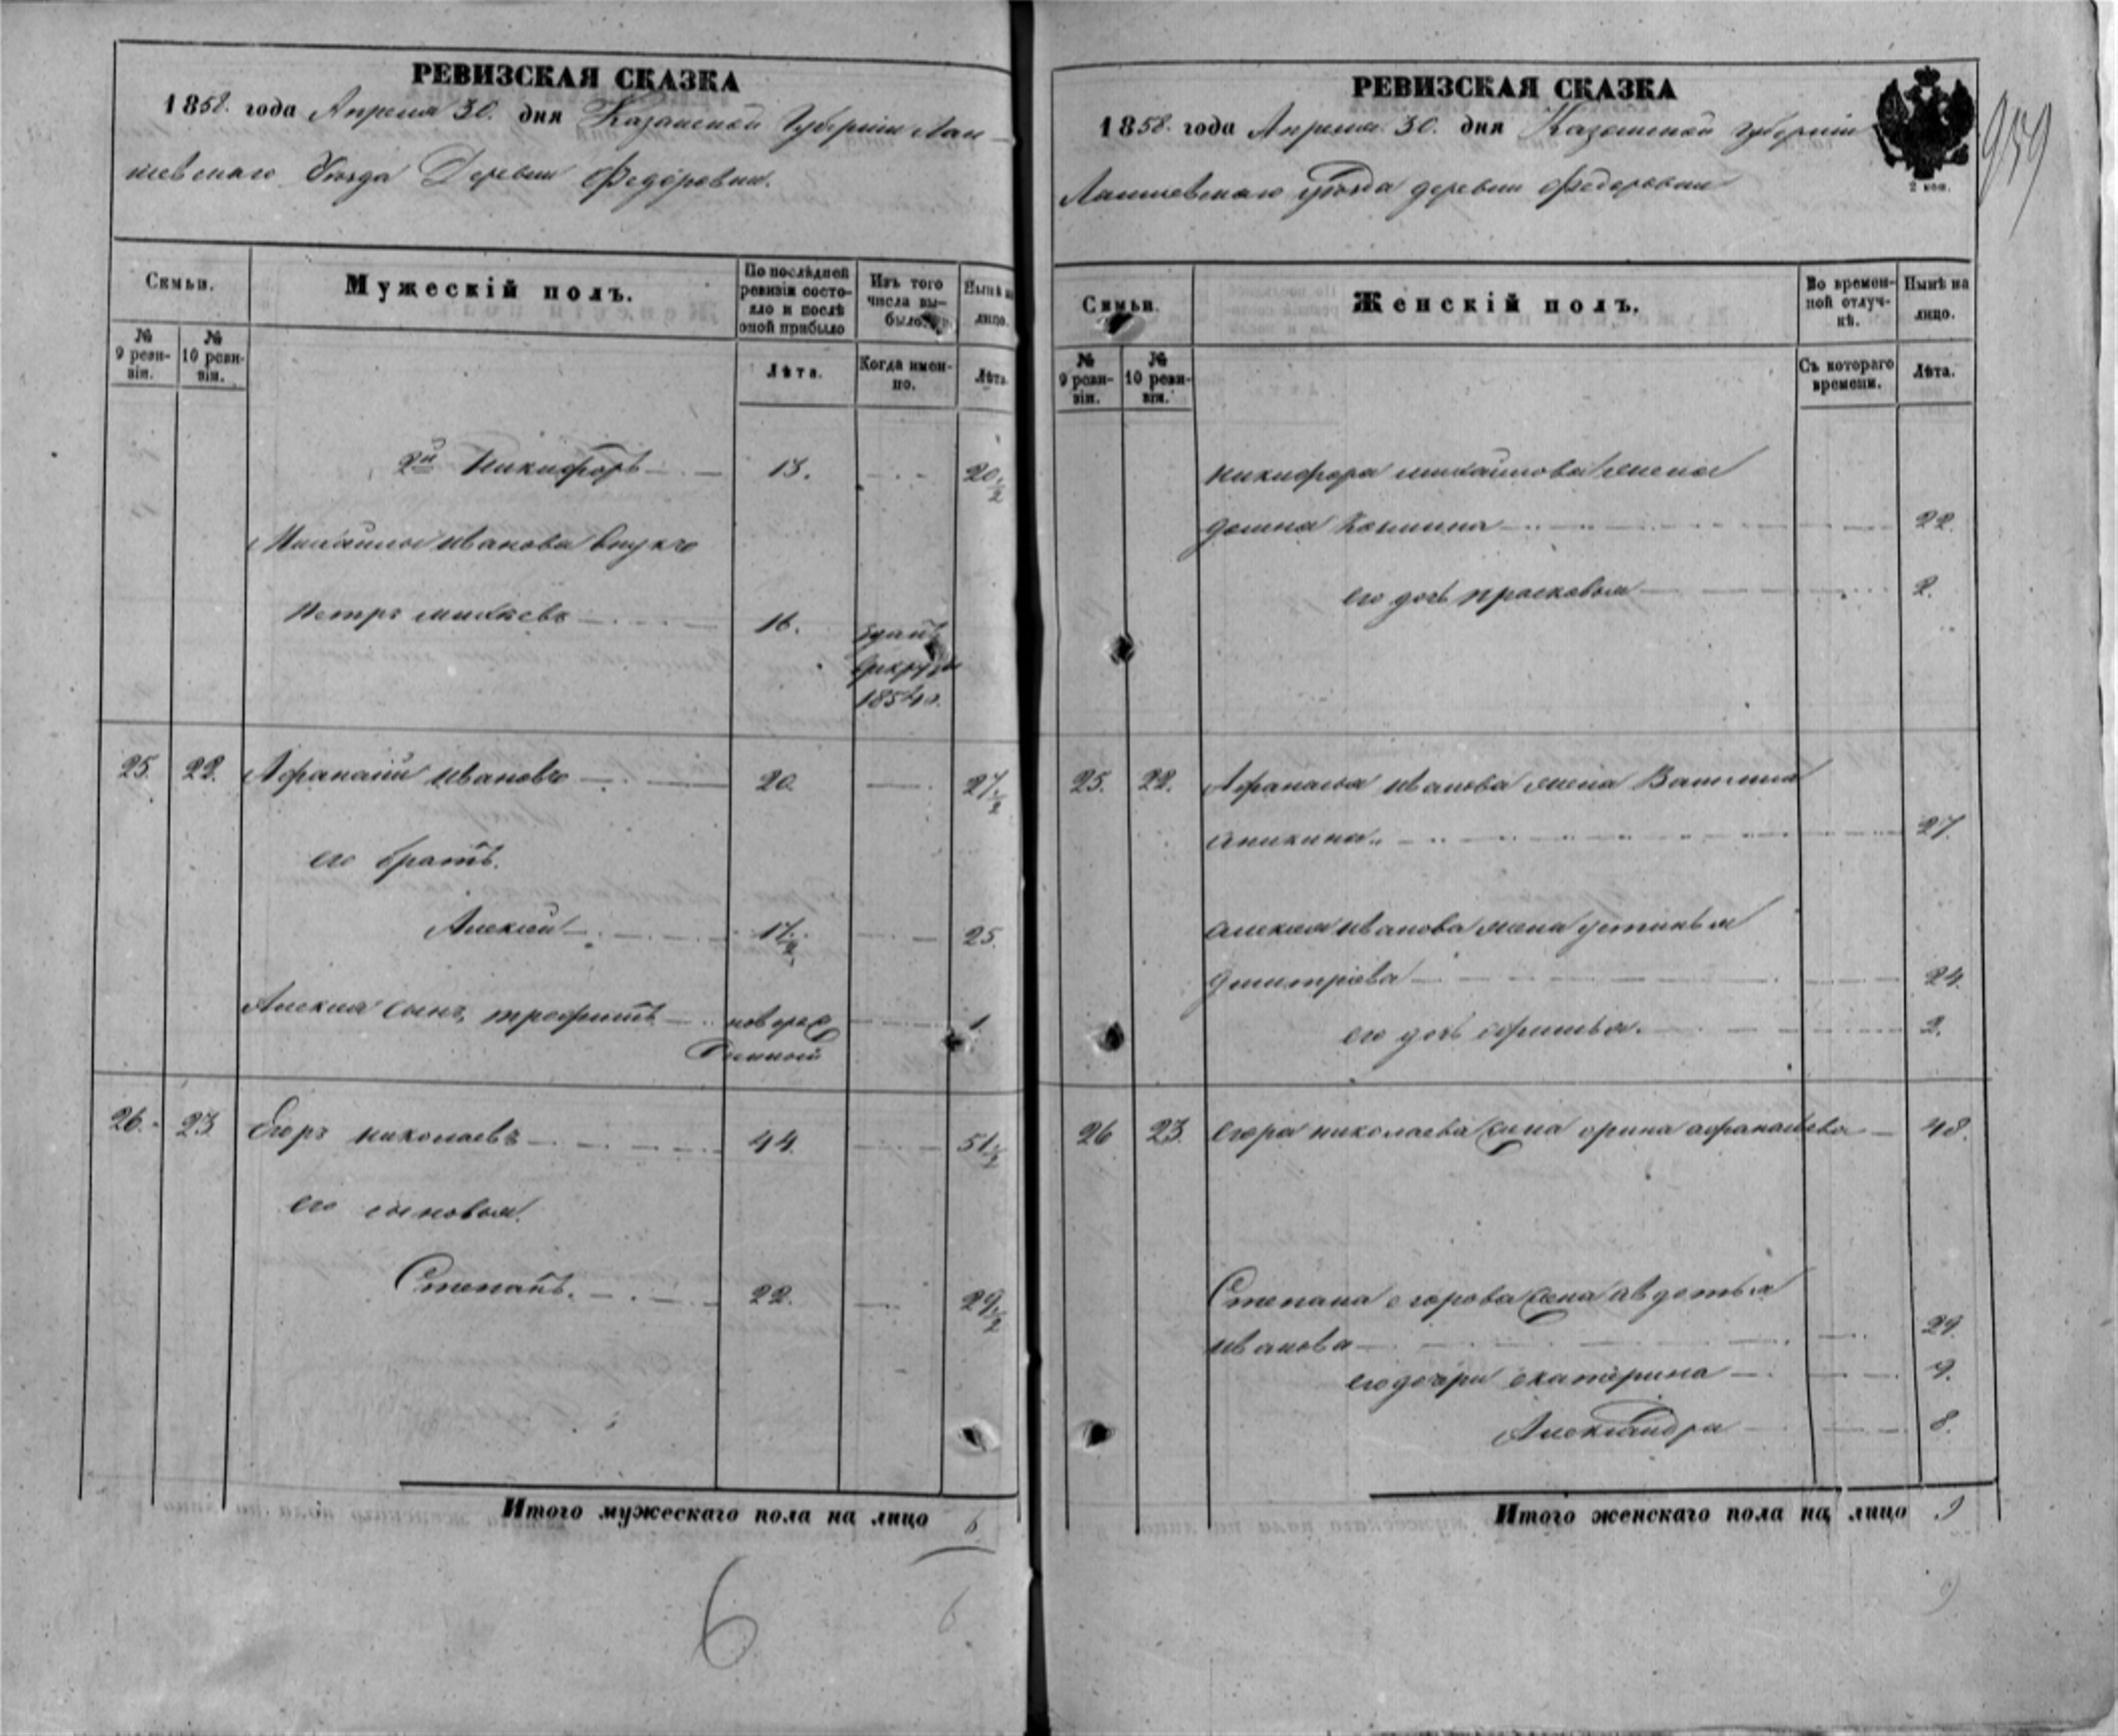 РЕВИЗСКАЯ СКАЗКА
1858. года Апреля 30. дня Казанской Губернии Лаи-
шевскаго Уезда Деревни Федоровки.
Семьи.
Мужескій полъ.
По послѣдней ревизіи состо-
яло и послѣ
оной прибыло
Изъ того
числа вы-
было.
Нынѣ на
лицо.
№
9 реви-
зіи.
№
10 реви-
зіи.
Лѣта.
Когда имен-
но.
Лѣта.
2й Никифоръ 13. 20 1/2
Михайлы Иванова внукъ
Петръ 16. зданъ
в рекруты
1854 г.
25. 22. Афанасий Ивановъ 20. 27 1/2
его братъ.
Алексей 17 1/2 25.
Алексея сынъ, трофимъ новорож
денной 1
26. 23 Егоръ николаевъ 44. 51 1/2
его сыновья.
Степанъ. 22. 29 1/2
Итого мужескаго пола на лицо 6.
6
6
РЕВИЗСКАЯ СКАЗКА
1858. года Апреля 30. дня Казанской губернии
Лаишевскаго уезда деревни Федоровки
2 коп.
959
Семьи.
Женскій полъ.
Во времен-
ной отлуч-
кѣ.
Нынѣ на
лицо.
№
9 реви-
зіи.
№
10 реви-
зіи.
Съ котораго
времени.
Лѣта.
никифора михайлова жена
домна 22.
его дочь прасковья 2.
25. 22. Афанасья Иванова жена Василиса
аникина 27.
алексея иванова жена устинья
дмитриева 24.
его дочь афимья. 2.
26 23. егора николаева жена орина афанасьева 48.
Степана егорова жена авдотья
иванова 29.
его дочери екатерина 9.
Александра 8.
Итого женскаго пола на лицо 9
9